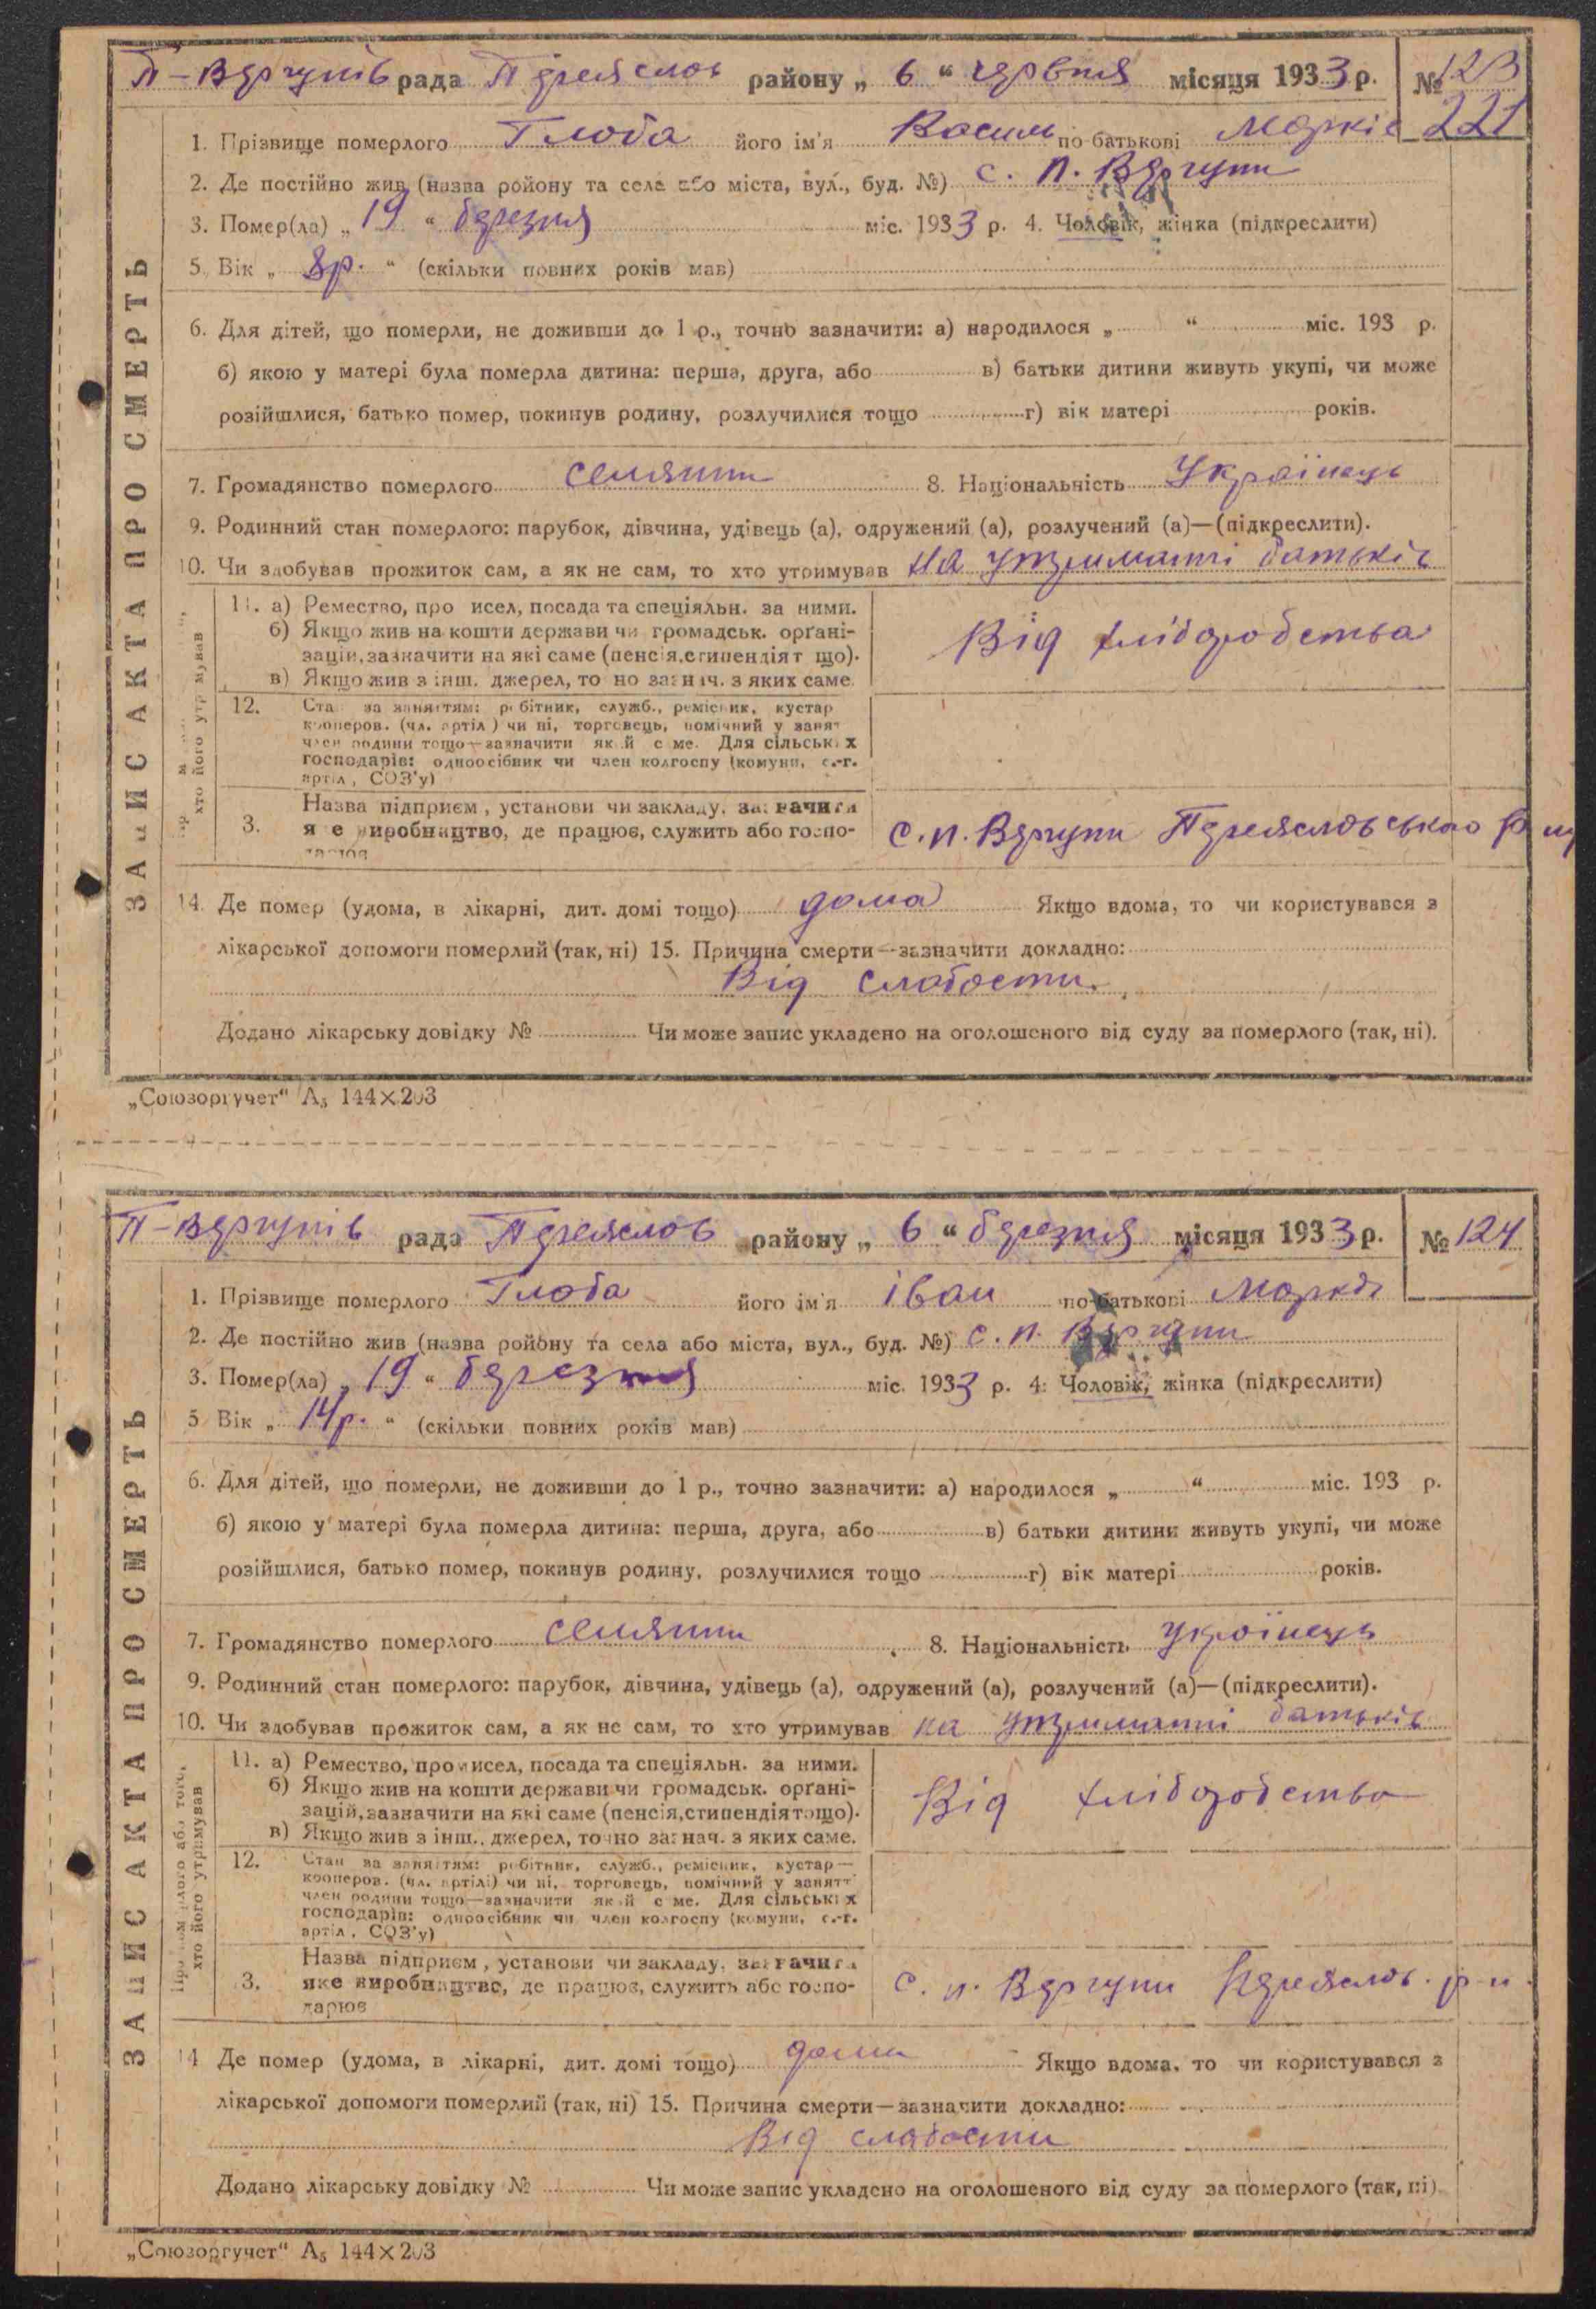 П-Вергунів рада Переяслов району „ 6 “ червня місяця 1933 р. № 123
221
1. Прізвище померлого Глоба його ім'я Касим по батькові Маркіє
2. Де постійно жив (назва ройону та села або міста, вул., буд. №) с. П. Вергуни
3. Помер(ла) „ 19 “ березня міс. 1933 р. 4. Чоловік, жінка (підкреслити)
5. Вік „ 8р. “ (скільки повних років мав)
6. Для дітей, що померли, не доживши до 1 р., точно зазначити: а) народилося „ “ міс. 193 р.
б) якою у матері була померла дитина: перша, друга, або в) батьки дитини живуть укупі, чи може
розійшлися, батько помер, покинув родину, розлучилися тощо г) вік матері років.
7. Громадянство померлого селянин 8. Національність Українець
9. Родинний стан померлого: парубок, дівчина, удівець (а), одружений (а), розлучений (а)—(підкреслити).
10. Чи здобував прожиток сам, а як не сам, то хто утримував на утриманні батьків
11. а) Ремество, про исел, посада та спеціяльн. за ними.
б) Якщо жив на кошти держави чи громадськ. орґані-
зацій, зазначити на які саме (пенсія, стипендіят що).
в) Якщо жив з інш. джерел, то но зазнач. з яких саме.
Від хліборобства
12. Ста за заняттям: робітник, служб., ремісник, кустар
кооперов. (чл. артіл ) чи ні, торговець, помічний у занят
член родини тощо—зазначити як й с ме. Для сільськ х
господарів: одноосібник чи член колгоспу (комуни, с.-г.
артіл , СОЗ'у)
хто його утримував
3. Назва підприєм , установи чи закладу, зазначити
я е виробництво, де працює, служить або госпо-
дарює
с. п. Вергуни Переясловського р ну
14. Де помер (удома, в лікарні, дит. домі тощо) дома Якщо вдома, то чи користувався з
лікарської допомоги померлий (так, ні) 15. Причина смерти—зазначити докладно:
Від слабости.
Додано лікарську довідку № Чи може запис укладено на оголошеного від суду за померлого (так, ні).
ЗАПИС АКТА ПРО СМЕРТЬ
„Союзоргучет“ А5 144×203
П-Вергунів рада Переяслов району „ 6 “ березня місяця 1933 р. № 124
1. Прізвище померлого Глоба його ім'я Іван по батькові
2. Де постійно жив (назва ройону та села або міста, вул., буд. №) с. п. Вергуни
3. Помер(ла) „ 19 “ березня міс. 1933 р. 4. Чоловік, жінка (підкреслити)
5 Вік „ 14р. “ (скільки повних років мав)
6. Для дітей, що померли, не доживши до 1 р., точно зазначити: а) народилося „ “ міс. 193 р.
б) якою у матері була померла дитина: перша, друга, або в) батьки дитини живуть укупі, чи може
розійшлися, батько помер, покинув родину, розлучилися тощо г) вік матері років.
7. Громадянство померлого селянин 8. Національність Українець
9. Родинний стан померлого: парубок, дівчина, удівець (а), одружений (а), розлучений (а)—(підкреслити).
10. Чи здобував прожиток сам, а як не сам, то хто утримував на утриманні батьків
11. а) Ремество, про исел, посада та спеціяльн. за ними.
б) Якщо жив на кошти держави чи громадськ. орґані-
зацій, зазначити на які саме (пенсія, стипендія тощо).
в) Якщо жив з інш. джерел, точно зазнач. з яких саме.
Від хліборобства
12. Стан за заняттям: робітник, служб., ремісник, кустар—
кооперов. (чл. артілі) чи ні, торговець, помічний у занятт
член родини тощо—зазначити як й с ме. Для сільськ х
господарів: одноосібник чи член колгоспу (комуни, с.-г.
артіл , СОЗ'у)
або того, хто його утримував
3. Назва підприєм , установи чи закладу, зазначити
яке виробництво, де працює, служить або госпо-
дарює
с. п. Вергуни Переяслов. р-н.
14 Де помер (удома, в лікарні, дит. домі тощо) дома Якщо вдома, то чи користувався з
лікарської допомоги померлий (так, ні) 15. Причина смерти—зазначити докладно:
Від слабости
Додано лікарську довідку № Чи може запис укладено на оголошеного від суду за померлого (так, ні)
ЗАПИС АКТА ПРО СМЕРТЬ
„Союзоргучет“ А5 144×203